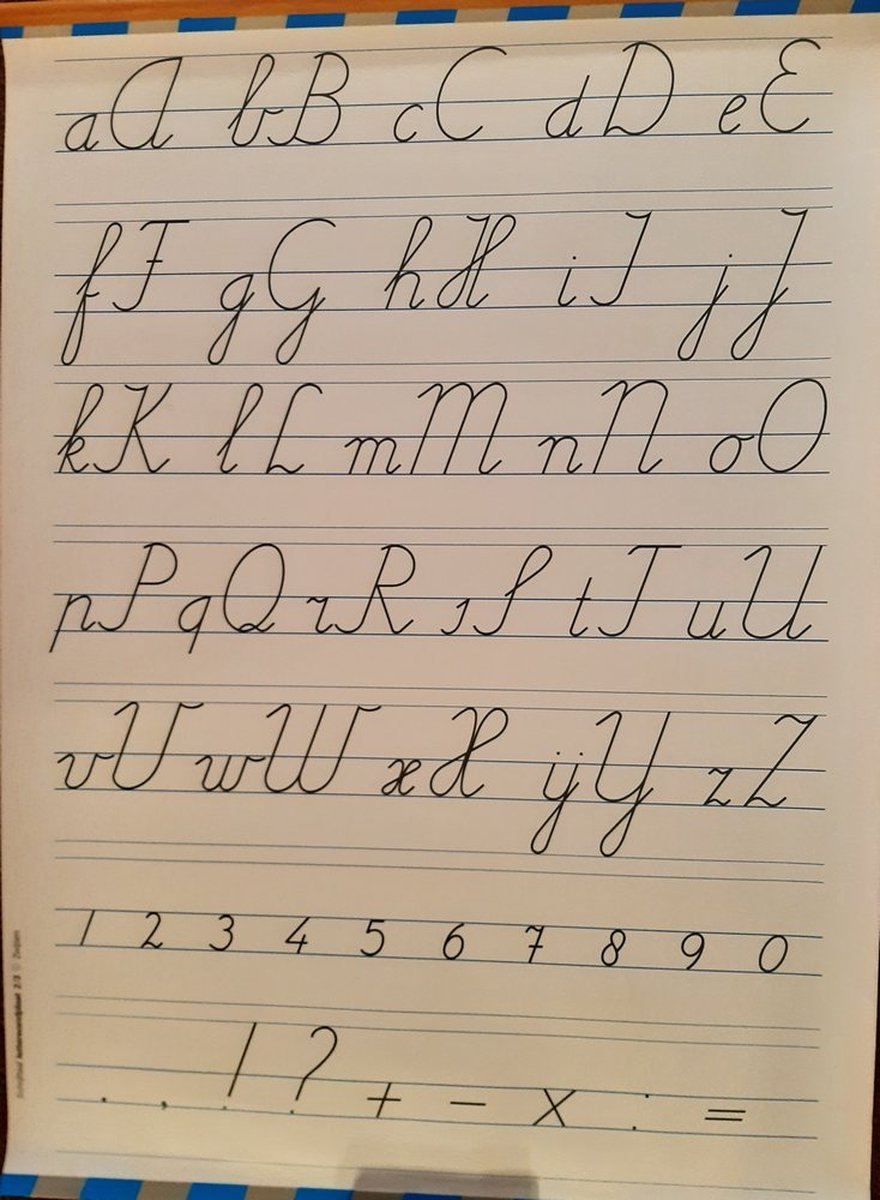 aA bB cC dD eE
fF gG hH iI jJ
kK lL mM nN oO
pP qQ rR sS tT uU
vV wW xX ÿY zZ
1 2 3 4 5 6 7 8 9 0
. , ! ? + - x : =
2/3 © Zwijsen